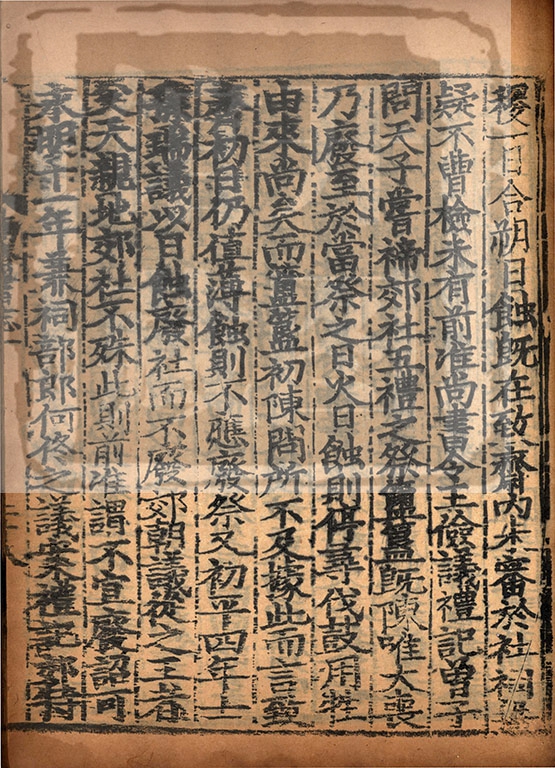 稷一日合朔日蝕既在致齋內未審於社祠無
疑不曹檢未有前准尚書令王儉議禮記曾子
問天子嘗禘郊社五禮之祭簠簋既陳唯大喪
乃廢至於當祭之日火日蝕則停尋伐鼓用牲
由來尚矣而簠簋初陳問所不及據此而言致
齋初日仍值薄蝕則不應廢祭又初平四年士
孫瑞議以日蝕廢社而不廢郊朝議從之王者
父天親地郊社不殊此則前准謂不宜廢詔可
永明十一年兼祠部郎何佟之議案禮記郊特